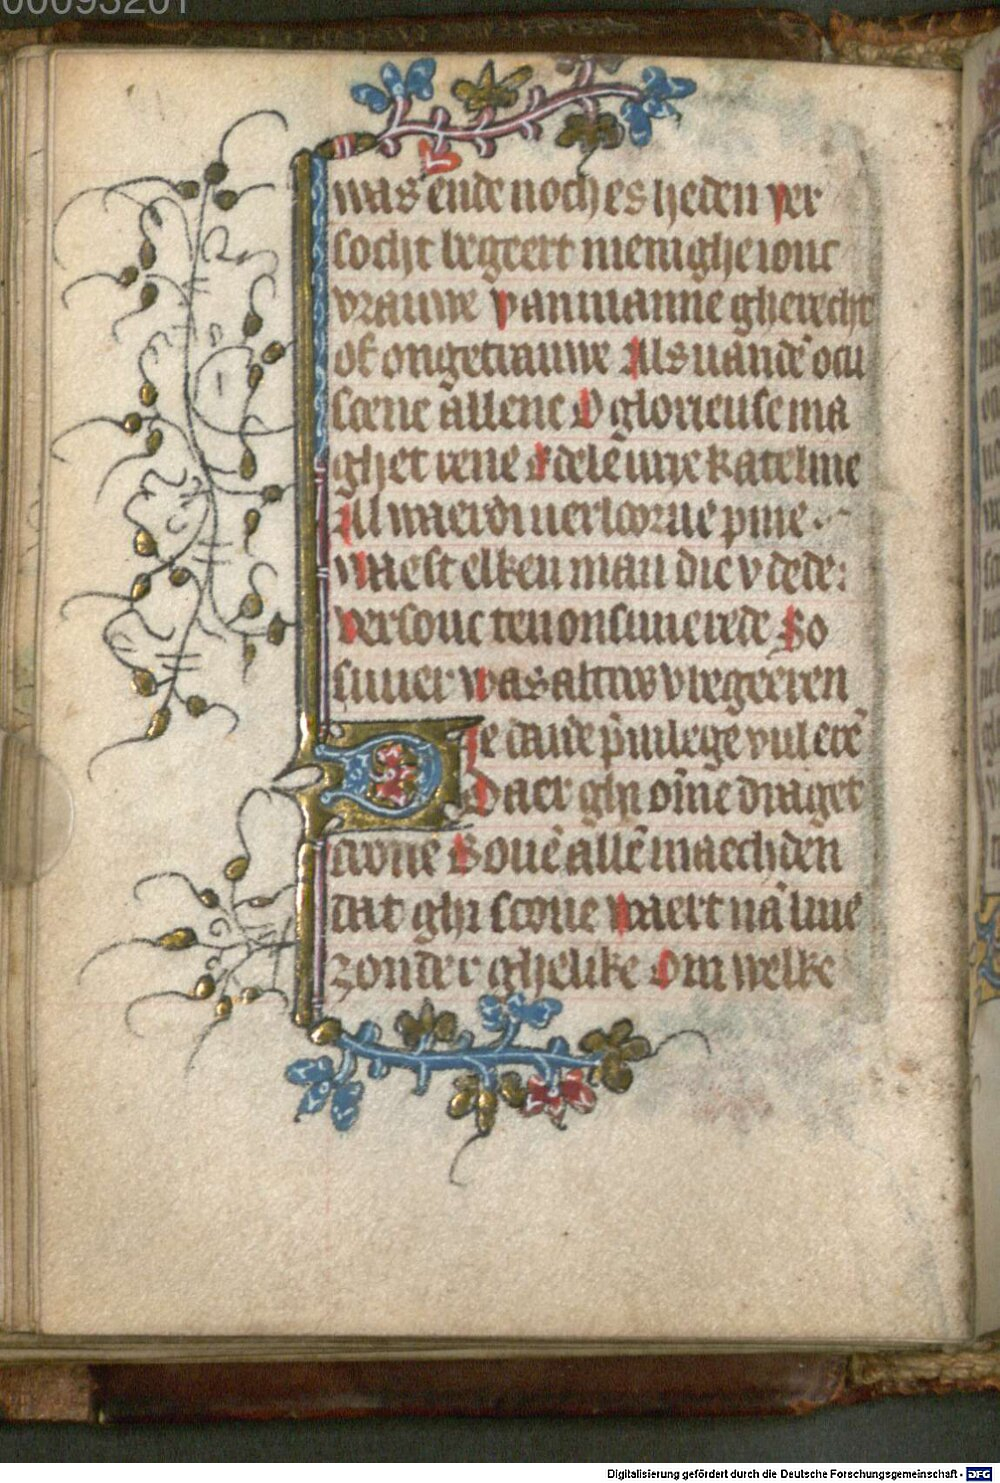 00093201
was ende noch es heden ver
socht begeert menighe ionc
vrauwe van manne gherecht
of ongetrauwe Als uande ocu
scene allene O glorieuse ma
ghet rene Edele vrije kateline
Al waerdi uerlorne pine
Waest elken man die v dede:
Versouc ten onsiuerede So
suuer was altoos v begeeren
Die dau&#x27;de p̄uilege vul ere
Daer ghi o͞me draget
crone Bouē allē maechden
dat ghi scone waert nā liue
zonder ghelike Om welke
Digitalisierung gefördert durch die Deutsche Forschungsgemeinschaft - DFG